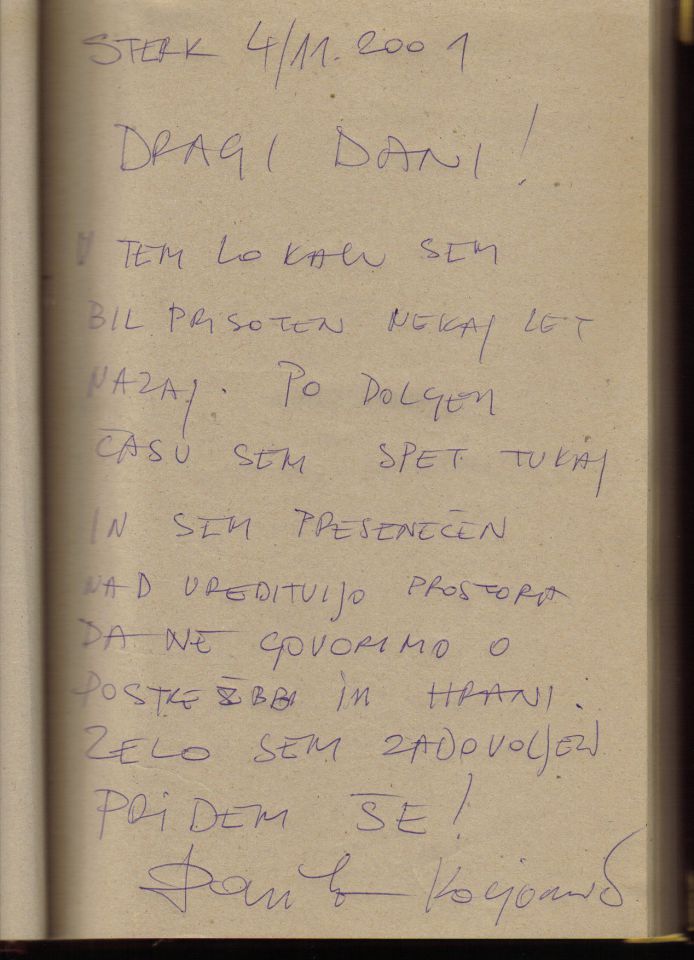 STERK 4/11.2001
DRAGI DANI!
V TEM LOKALU SEM
BIL PRISOTEN NEKAJ LET
NAZAJ. PO DOLGEM
ČASU SEM SPET TUKAJ
IN SEM PRESENEČEN
NAD UREDITVIJO PROSTORA
DA NE GOVORIMO O
POSTREŽBI IN HRANI.
ZELO SEM ZADOVOLJEN
PRIDEM ŠE!